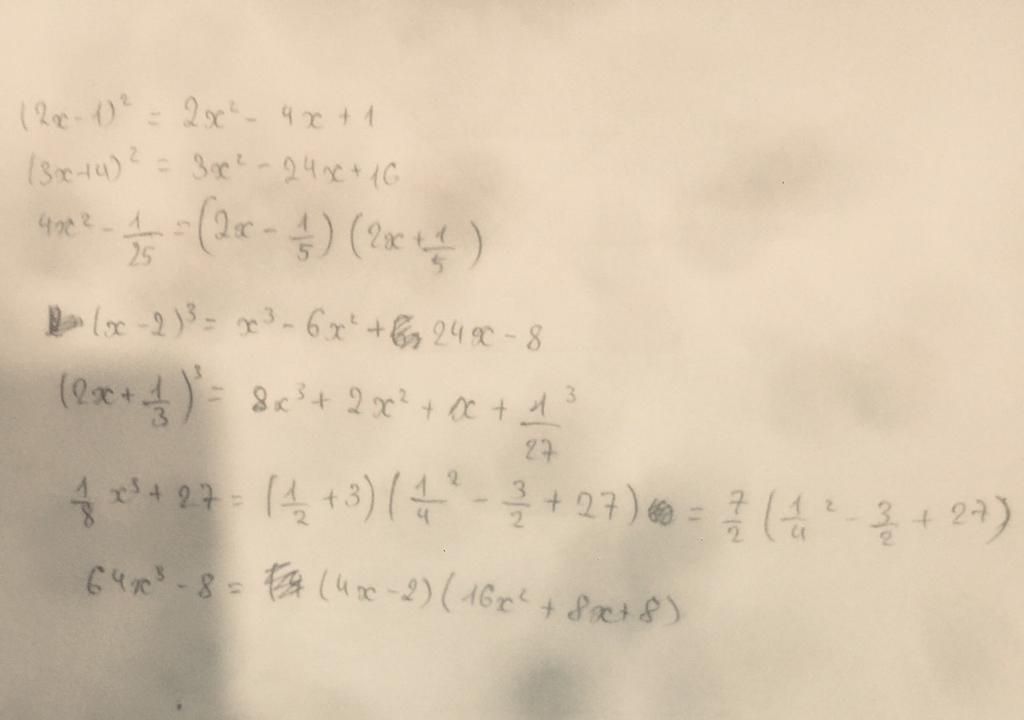 (2x-1)² = 2x² - 4x + 1
(3x+4)² = 3x² - 24x + 16
4x² - 1/25 = (2x - 1/5) (2x + 1/5)
(x - 2)³ = x³ - 6x² + 24x - 8
(2x + 1/3)³ = 8x³ + 2x² + x + 1/27 ³
1/8 x³ + 27 = (1/2 + 3) (1/4 ² - 3/2 + 27) = 7/2 (1/4 ² - 3/2 + 27)
64x³ - 8 = (4x - 2) (16x² + 8x + 8)